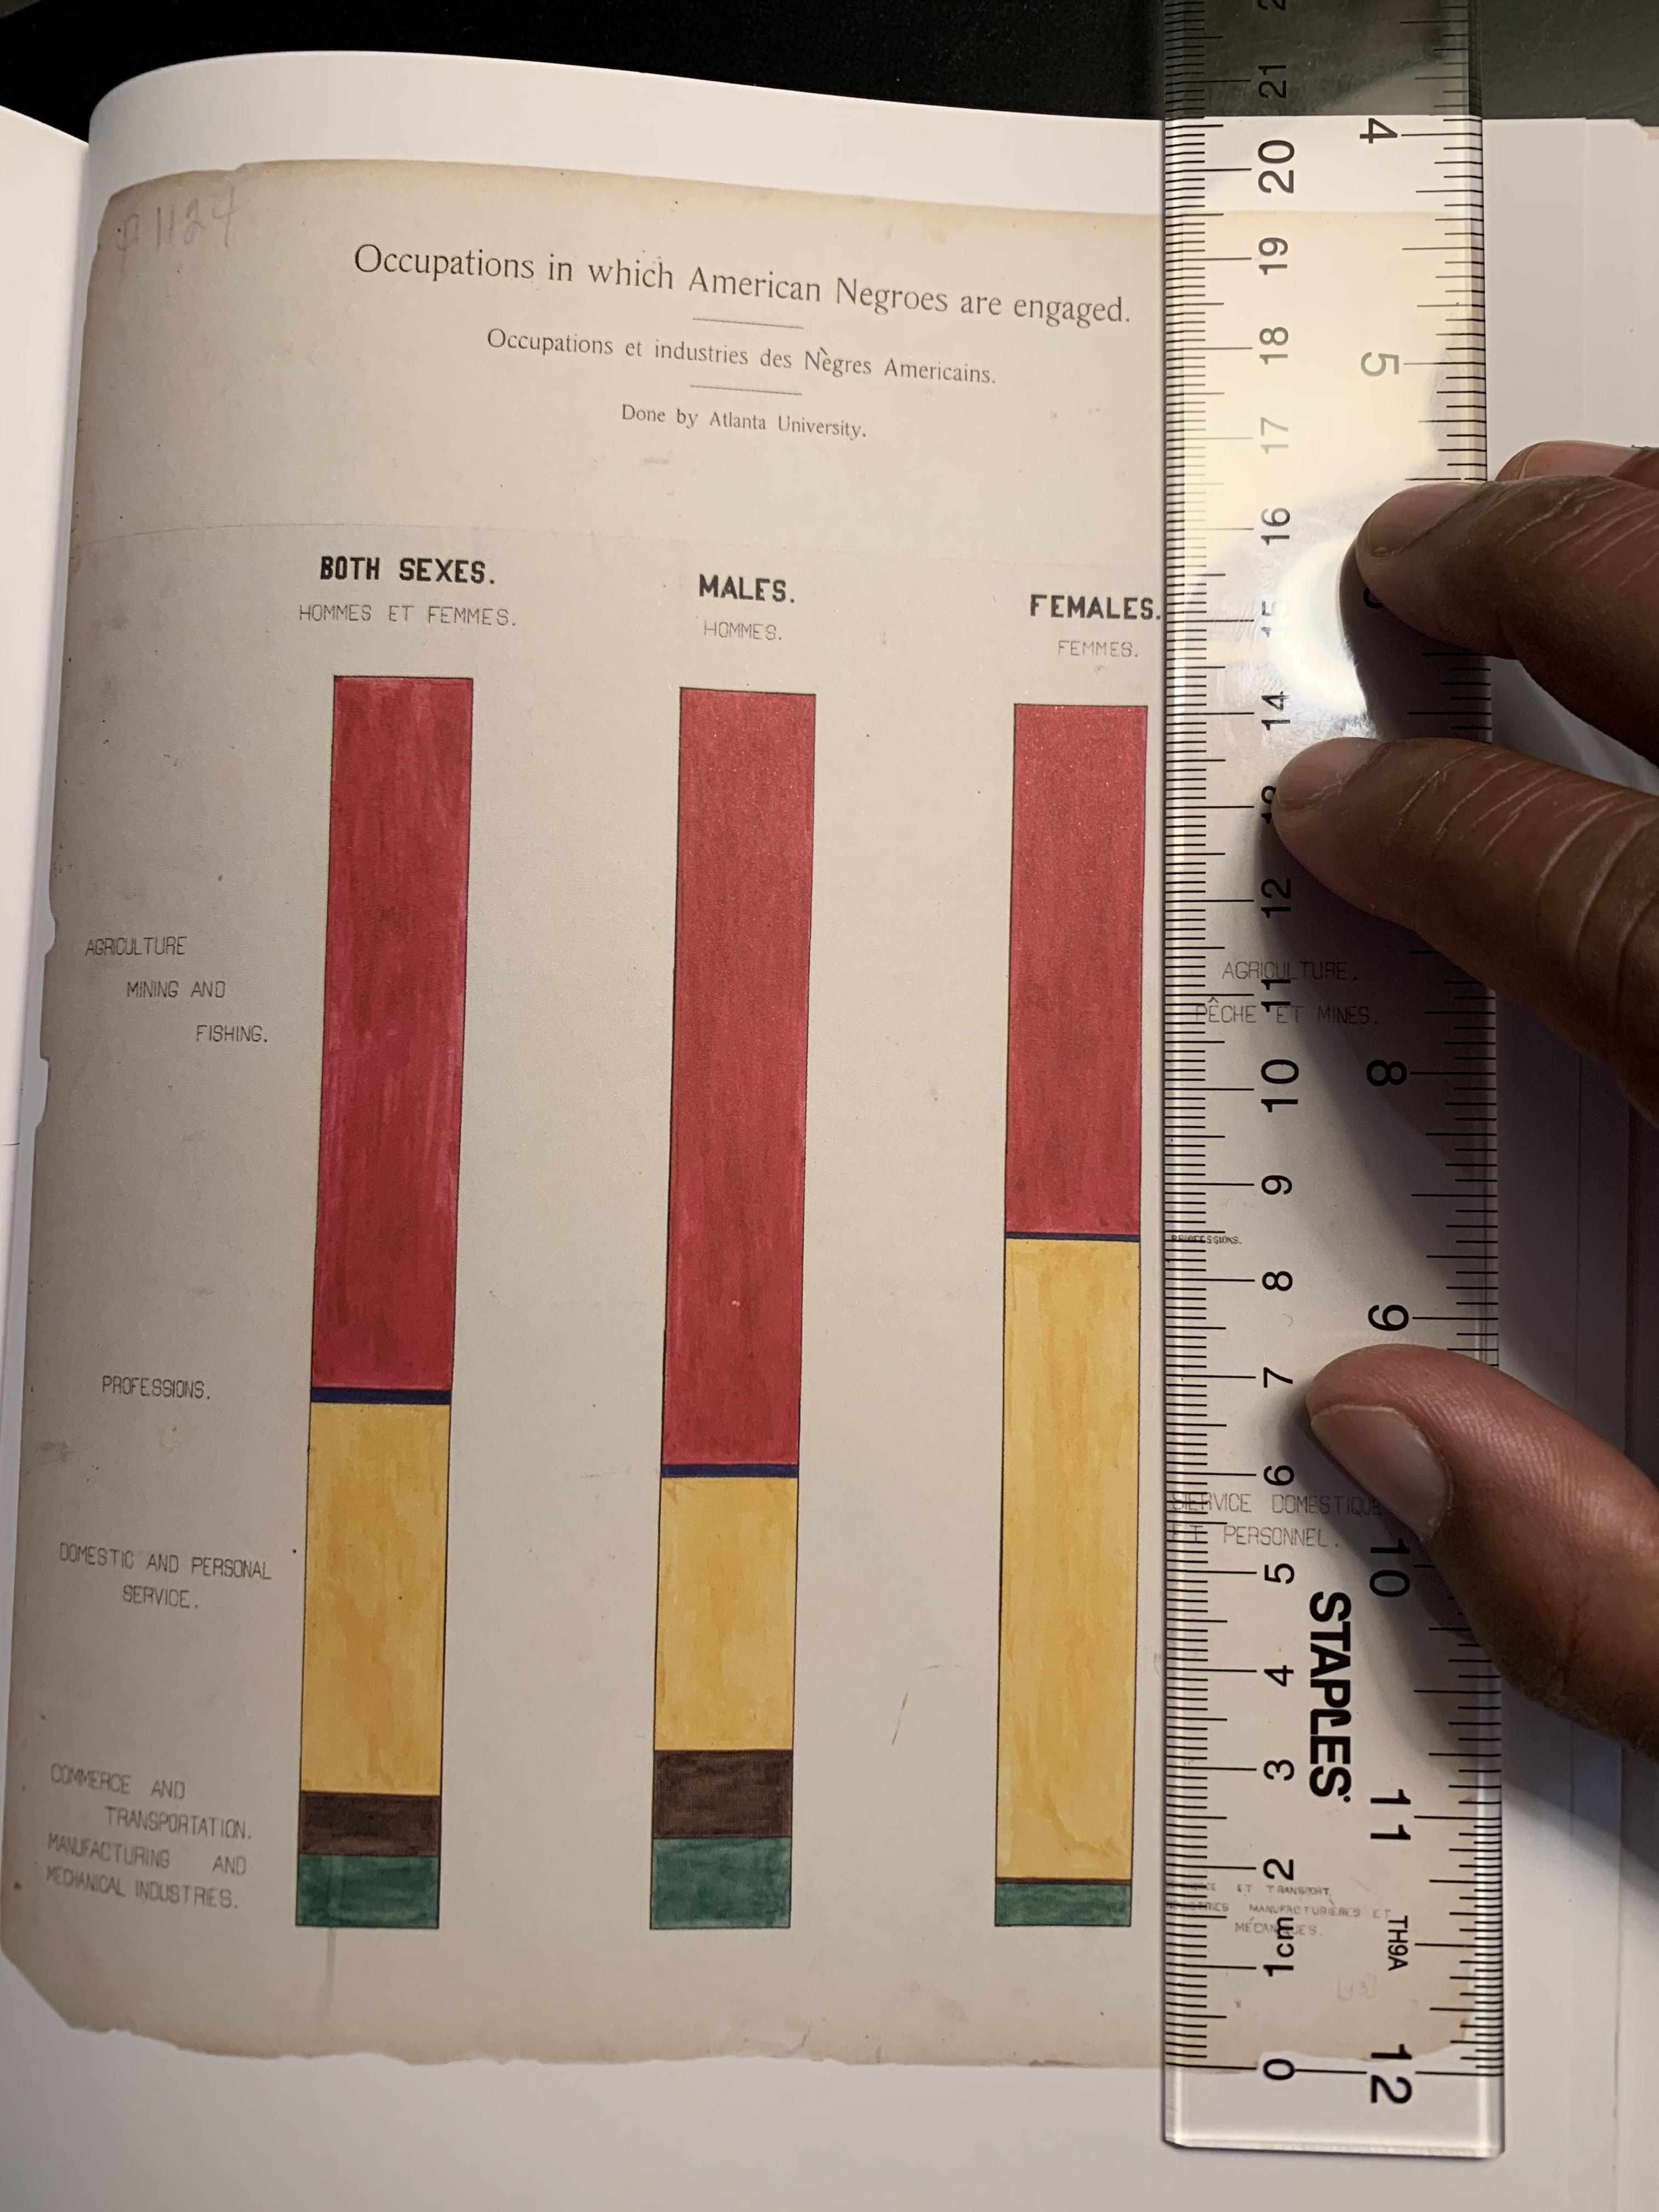 1124
Occupations in which American Negroes are engaged.
Occupations et industries des Nègres Americains.
Done by Atlanta University.
BOTH SEXES.
HOMMES ET FEMMES.
MALES.
HOMMES.
FEMALES.
FEMMES.
AGRICULTURE
MINING AND
FISHING.
PROFESSIONS.
DOMESTIC AND PERSONAL
SERVICE.
COMMERCE AND
TRANSPORTATION.
MANUFACTURING AND
MECHANICAL INDUSTRIES.
AGRICULTURE.
PÊCHE ET MINES.
PROFESSIONS.
SERVICE DOMESTIQUE
ET PERSONNEL.
ET TRANSPORT.
MANUFACTURIÈRES ET
MÉCANIQUES.
21
20
19
18
17
16
15
14
12
11
10
9
8
7
6
5
4
3
2
1cm
0
4
5
8
9
10
11
12
STAPLES
TH9A